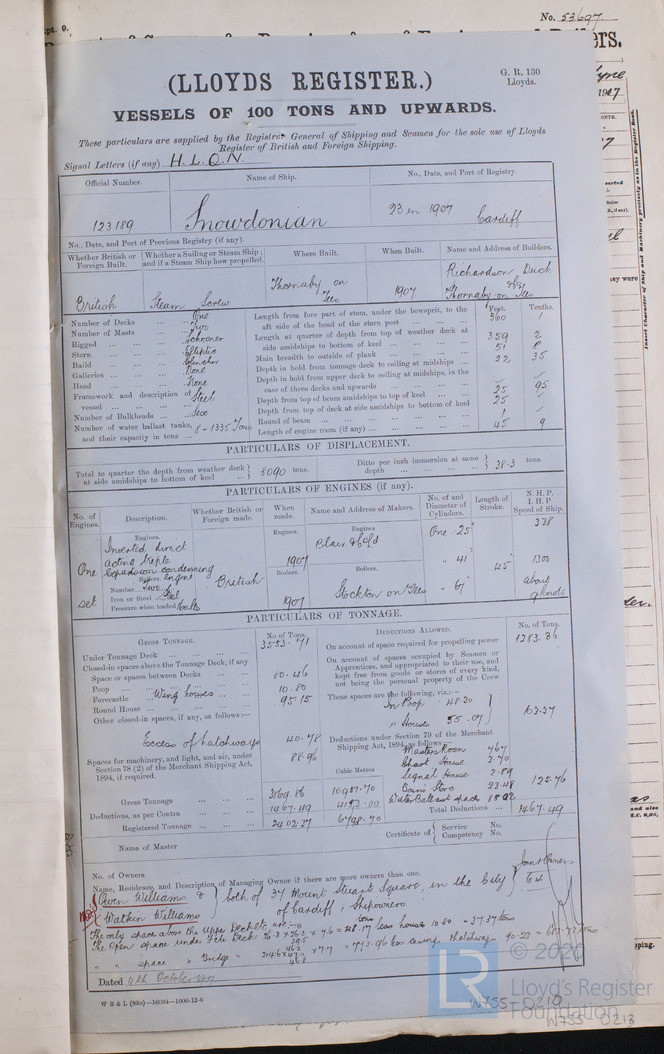 No. 53697
pt. 9.
(LLOYDS REGISTER.)
G. R. 130
Lloyds.
VESSELS OF 100 TONS AND UPWARDS.
These particulars are supplied by the Registrar General of Shipping and Seamen for the sole use of Lloyds
Register of British and Foreign Shipping.
Signal Letters (if any) H. L. Q. N.
Official Number. Name of Ship. No., Date, and Port of Registry.
123189 Snowdonian 23 in 1907 Cardiff
No., Date, and Port of Previous Registry (if any).
Whether British or Foreign Built. Whether a Sailing or Steam Ship; and if a Steam Ship how propelled. Where Built. When Built. Name and Address of Builders.
British Steam Screw Thornaby on Tees 1907 Richardson Duck & Co Thornaby on Tees
Number of Decks ... One
Number of Masts ... Two
Rigged ... Schooner
Stern ... Elliptic
Build ... Clencher
Galleries ... None
Head ... None
Framework and description of vessel ... Steel
Number of Bulkheads ... Six
Number of water ballast tanks, and their capacity in tons ... 8 - 1335 Tons
Feet. Tenths.
Length from fore part of stem, under the bowsprit, to the aft side of the head of the stern post ... 360 1
Length at quarter of depth from top of weather deck at side amidships to bottom of keel ... 359 2
Main breadth to outside of plank ... 51
Depth in hold from tonnage deck to ceiling at midships ... 22 35
Depth in hold from upper deck to ceiling at midships, in the case of three decks and upwards ...
Depth from top of beam amidships to top of keel ... 25 95
Depth from top of deck at side amidships to bottom of keel 25
Round of beam ... 1
Length of engine room (if any) ... 45 9
PARTICULARS OF DISPLACEMENT.
Total to quarter the depth from weather deck at side amidships to bottom of keel 8090 tons. Ditto per inch immersion at same depth 38.3 tons.
PARTICULARS OF ENGINES (if any).
No. of Engines. Description. Whether British or Foreign made. When made. Name and Address of Makers. No. of and Diameter of Cylinders. Length of Stroke. N. H. P. I. H. P. Speed of Ship.
Engines. Engines. Engines.
One set
Inverted direct
acting triple
expansion condensing
Engine
British
1907
Blair & Co Ld
One 25"
" 41"
" 67
45"
338
1300
about
9 knots
Boilers. Boilers. Boilers.
Number ... Two
Iron or Steel ... Steel
Pressure when loaded 160 lbs
1907
Stockton on Tees
PARTICULARS OF TONNAGE.
GROSS TONNAGE. No of Tons.
Under Tonnage Deck ... 3553.71
Closed-in spaces above the Tonnage Deck, if any
Space or spaces between Decks ...
Poop ... 80.46
Forecastle ... Wing houses 10.80
Round House ... 95.15
Other closed-in spaces, if any, as follows:—
Excess of hatchways 40.78
Spaces for machinery, and light, and air, under Section 78 (2) of the Merchant Shipping Act, 1894, if required. 88.96
Cubic Metres
Gross Tonnage ... 3869.86 10987.70
Deductions, as per Contra ... 1467.49 4153.00
Registered Tonnage ... 2402.37 6798.70
DEDUCTIONS ALLOWED. No. of Tons.
On account of space required for propelling power 1283.36
On account of spaces occupied by Seamen or Apprentices, and appropriated to their use, and kept free from goods or stores of every kind, not being the personal property of the Crew
These spaces are the following, viz.:—
In Poop 48.30
" Houses
Deductions under Section 79 of the Merchant Shipping Act, 1894, as follows
Masters Room 4.67
Chart House 2.70
Signal House 2.89
Boatns Store 23.48
Water Ballast space
125.76
Total Deductions ... 1467.49
Name of Master
Certificate of Service No.
Competency No.
No. of Owners
Name, Residence, and Description of Managing Owner if there are more owners than one.
Owen Williams &
Watkin Williams
both of 37 Mount Stuart Square, in the City
of Cardiff, Shipowners
Joint Owners
64
The only space above the Upper Deck etc are:-
Dated 11th October 1907
W B & L (83s)—16004—1000-12-6
© 2020
LR
Lloyd's Register
Foundation
W755-0210
W755-0213